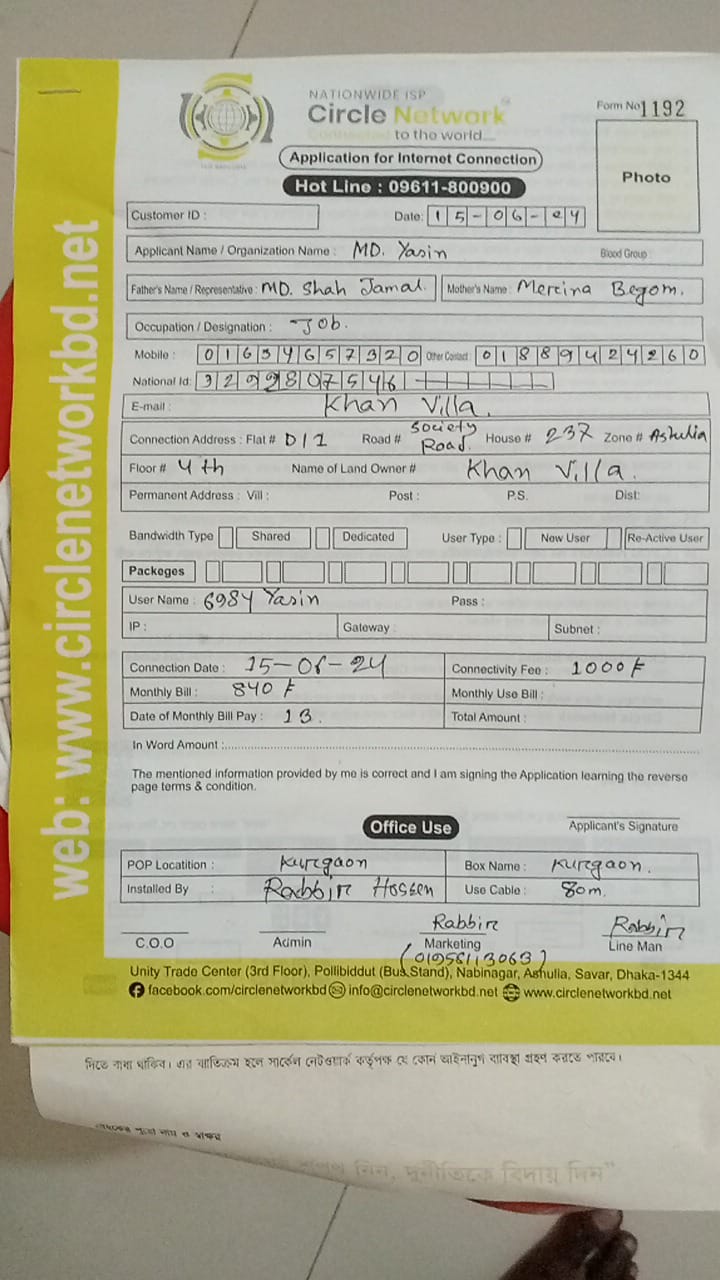 web: www.circlenetworkbd.net
NATIONWIDE ISP
Circle Network
Connected to the world....
Form No 1192
Application for Internet Connection
Photo
Hot Line : 09611-800900
Customer ID :
Date: 15-06-24
Applicant Name / Organization Name : MD. Yasin Blood Group :
Father's Name / Representative : MD. Shah Jamal. Mother's Name : Mercina Begom.
Occupation / Designation : Job.
Mobile : 01634657320 Other Contact : 01889424260
National Id: 3299807546
E-mail : Khan Villa.
Connection Address : Flat # D/1 Road # Society Road. House # 237 Zone # Ashulia
Floor # 4th Name of Land Owner # Khan Villa.
Permanent Address : Vill : Post : P.S. Dist:
Bandwidth Type Shared Dedicated User Type : New User Re-Active User
Packeges
User Name : 6984 Yasin Pass :
IP : Gateway : Subnet :
Connection Date : 15-06-24 Connectivity Fee : 1000
Monthly Bill : 840 Monthly Use Bill :
Date of Monthly Bill Pay : 13. Total Amount :
In Word Amount :
The mentioned information provided by me is correct and I am signing the Application learning the reverse
page terms & condition.
Office Use
Applicant's Signature
POP Locatition : Kurgaon Box Name : Kurgaon.
Installed By : Rabbir Hossen Use Cable : 80m.
Rabbir Rabbir
C.O.O Admin Marketing Line Man
(01958113063)
Unity Trade Center (3rd Floor), Pollibiddut (Bus Stand), Nabinagar, Ashulia, Savar, Dhaka-1344
facebook.com/circlenetworkbd info@circlenetworkbd.net www.circlenetworkbd.net
দিতে বাধ্য থাকিব। এর ব্যতিক্রম হলে সার্কেল নেটওয়ার্ক কর্তৃপক্ষ যে কোন আইনানুগ ব্যবস্থা গ্রহণ করতে পারবে।
নাম ও স্বাক্ষর
নিন, দুর্নীতিকে বিদায় দিন"